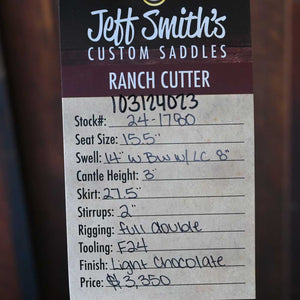 Jeff Smith's
CUSTOM SADDLES
RANCH CUTTER
103124023
Stock#: 24-1780
Seat Size: 15.5"
Swell: 14" W BW W/ LC 8"
Cantle Height: 3"
Skirt: 27.5"
Stirrups: 2"
Rigging: full double
Tooling: F24
Finish: Light Chocolate
Price: $3,350